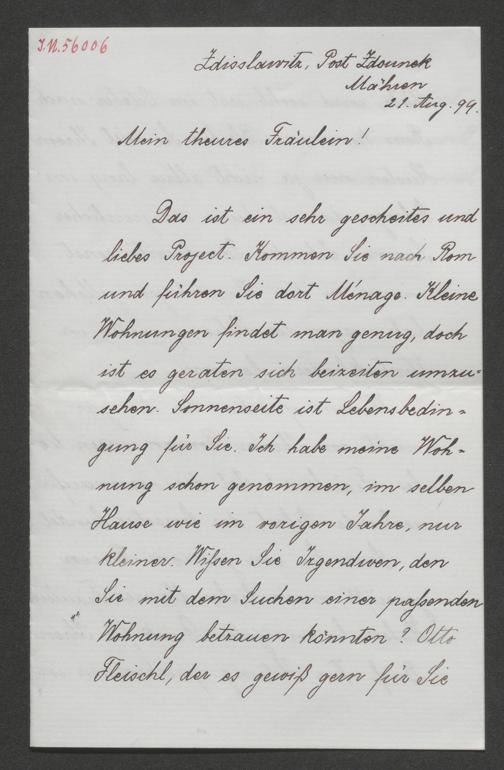 J.N. 56006
Zdisslawitz, Post Zdounek
Mähren
21. Aug. 99.
Mein theures Fräulein!
Das ist ein sehr gescheites und
liebes Project. Kommen Sie nach Rom
und führen Sie dort Ménage. Kleine
Wohnungen findet man genug, doch
ist es geraten sich beizeiten umzu-
sehen. Sonnenseite ist Lebensbedin-
gung für Sie. Ich habe meine Woh-
nung schon genommen, im selben
Hause wie im vorigen Jahre, nur
kleiner. Wißen Sie Irgendwen, den
Sie mit dem Suchen einer paßenden
Wohnung betrauen könnten? Otto
Fleischl, der es gewiß gern für Sie